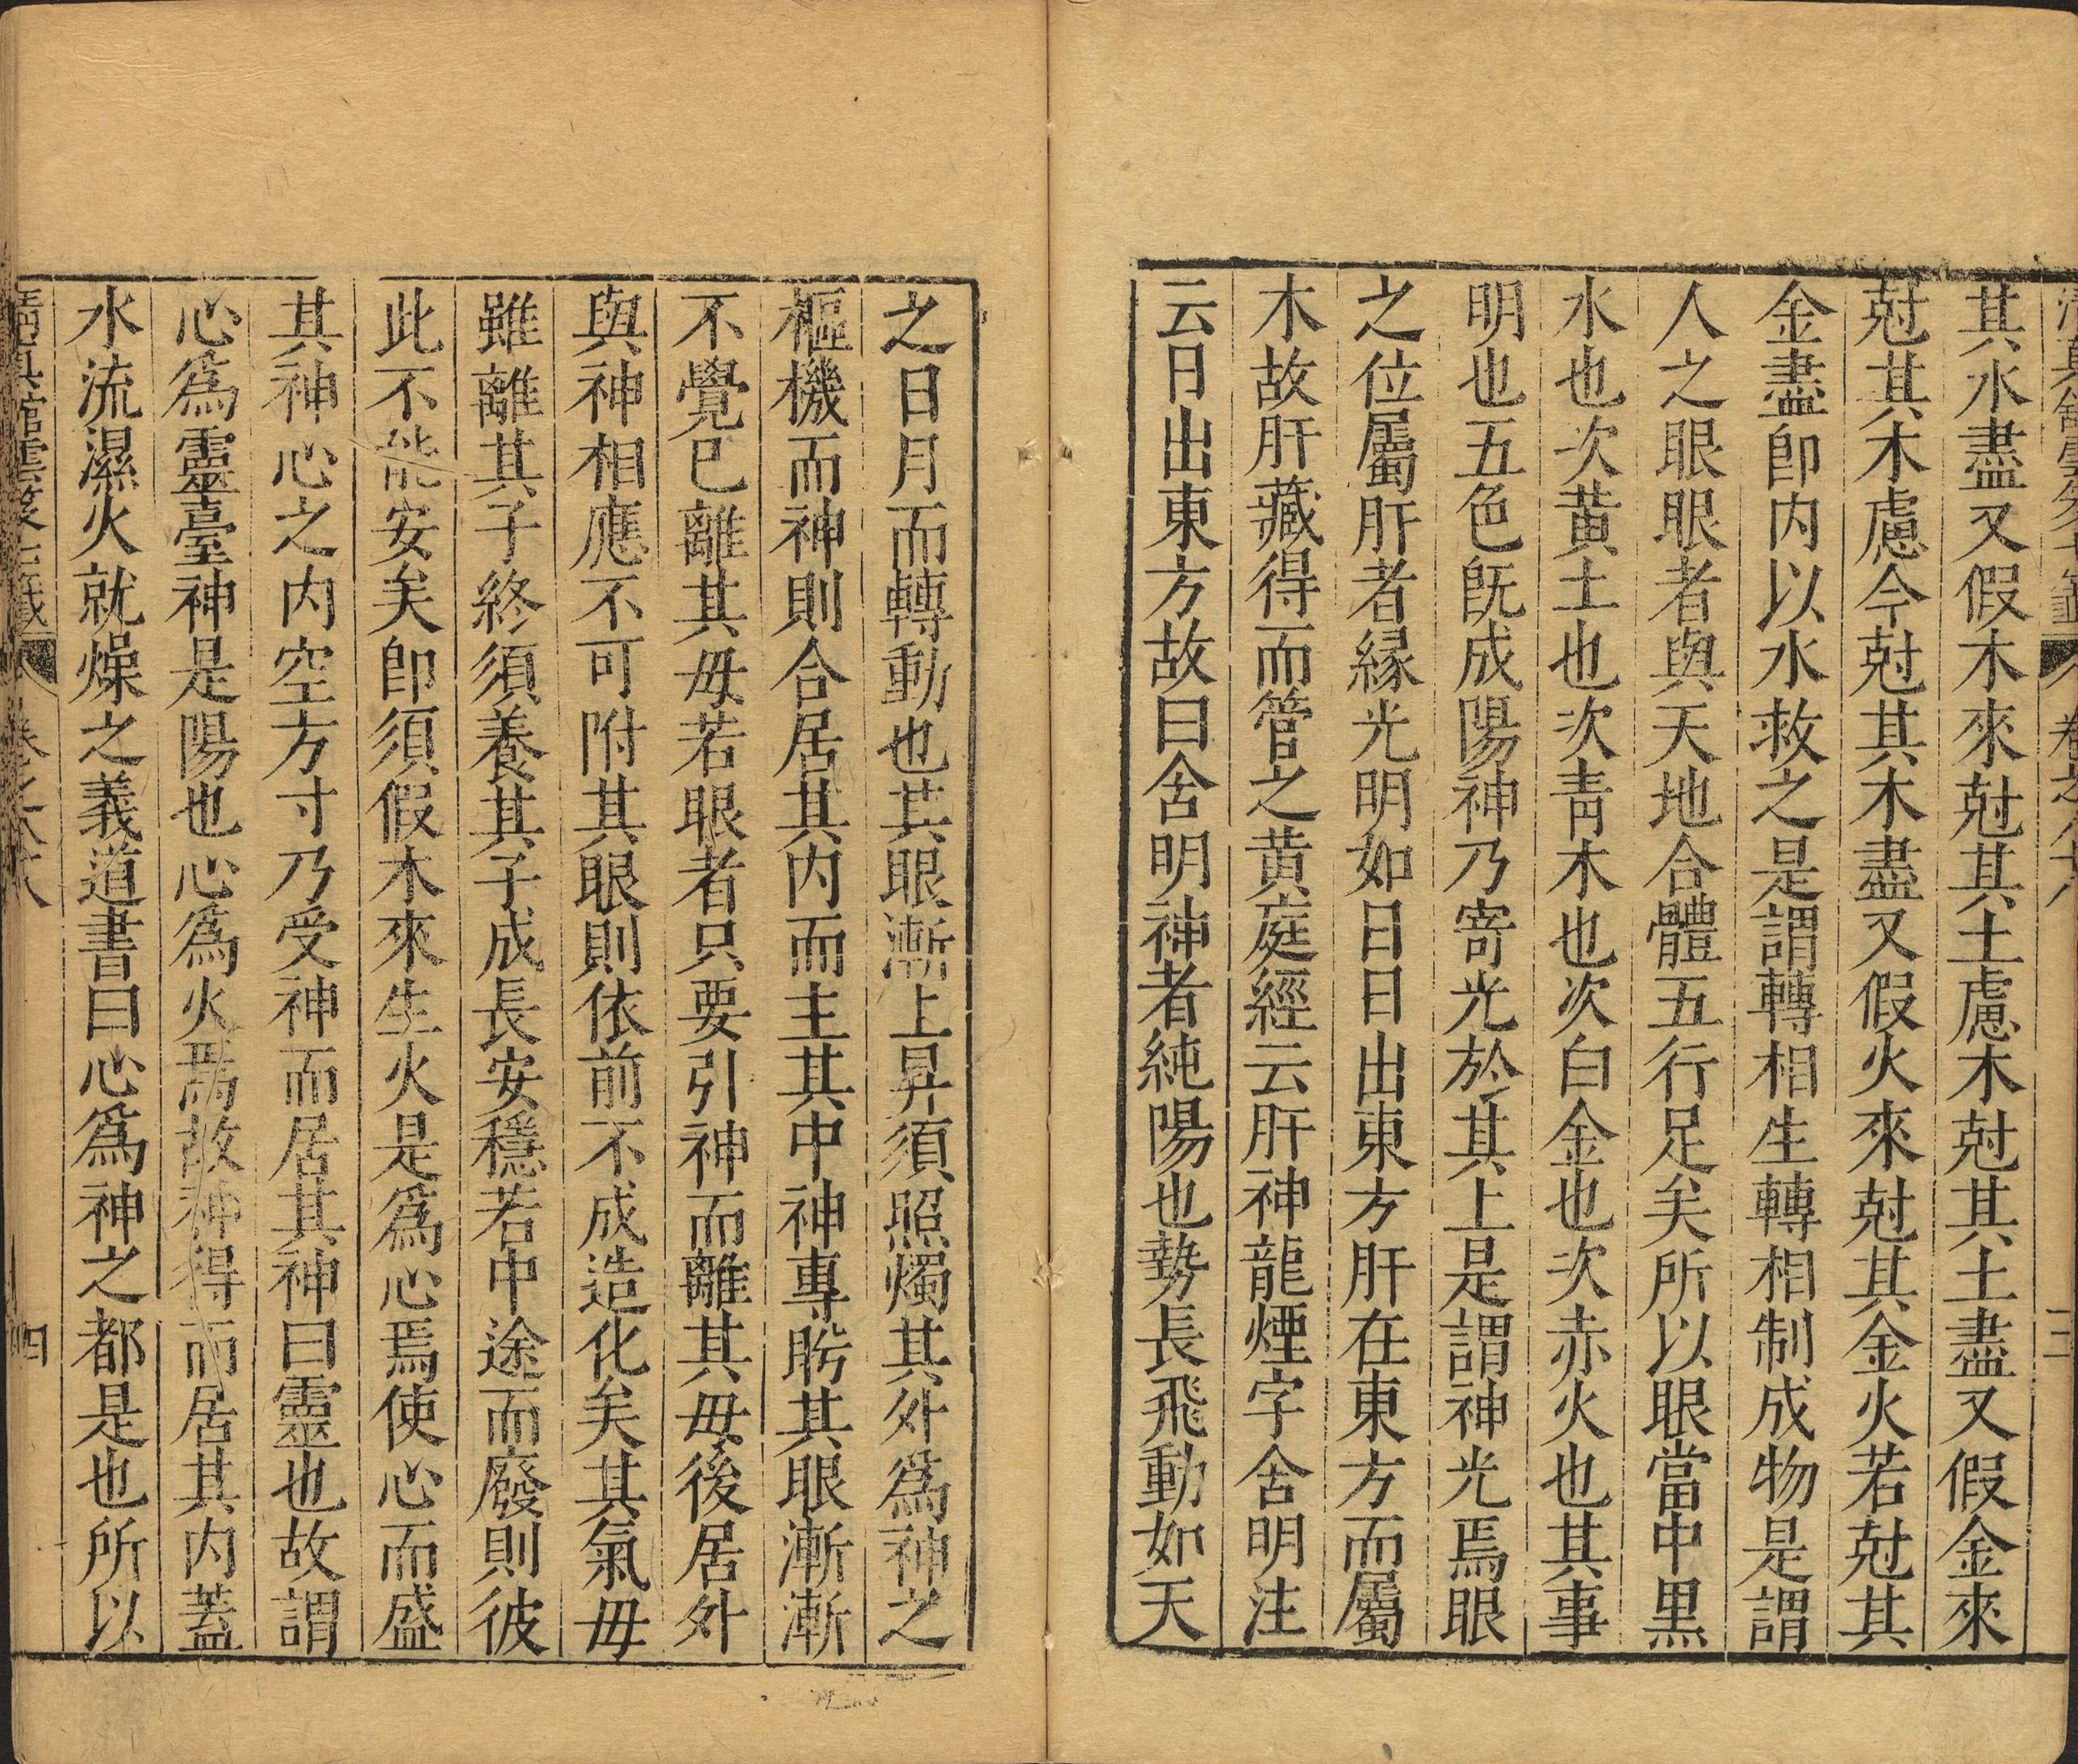 其水盡又假木來尅其土慮木尅其土盡又假金來
尅其木慮今尅其木盡又假火來尅其金火若尅其
金盡卽内以水救之是謂轉相生轉相制成物是謂
人之眼眼者與天地合體五行足矣所以眼當中黒
水也次黃土也次青木也次白金也次赤火也其事
明也五色旣成陽神乃寄光於其上是謂神光焉眼
之位屬肝者緣光明如日日出東方肝在東方而屬
木故肝藏得而管之黃庭經云肝神龍煙字含明注
云日出東方故曰含明神者純陽也勢長飛動如天
之日月而轉動也其眼漸上昇須照燭其外爲神之
樞機而神則合居其内而主其中神專盻其眼漸漸
不覺已離其毋若眼者只要引神而離其毋後居外
與神相應不可附其眼則依前不成造化矣其氣毋
雖離其子終須養其子成長安穩若中途而廢則彼
此不能安矣卽須假木來生火是爲心焉使心而盛
其神心之内空方寸乃受神而居其神曰靈也故謂
心爲靈臺神是陽也心爲火焉故神得而居其内蓋
水流濕火就燥之義道書曰心爲神之都是也所以
四